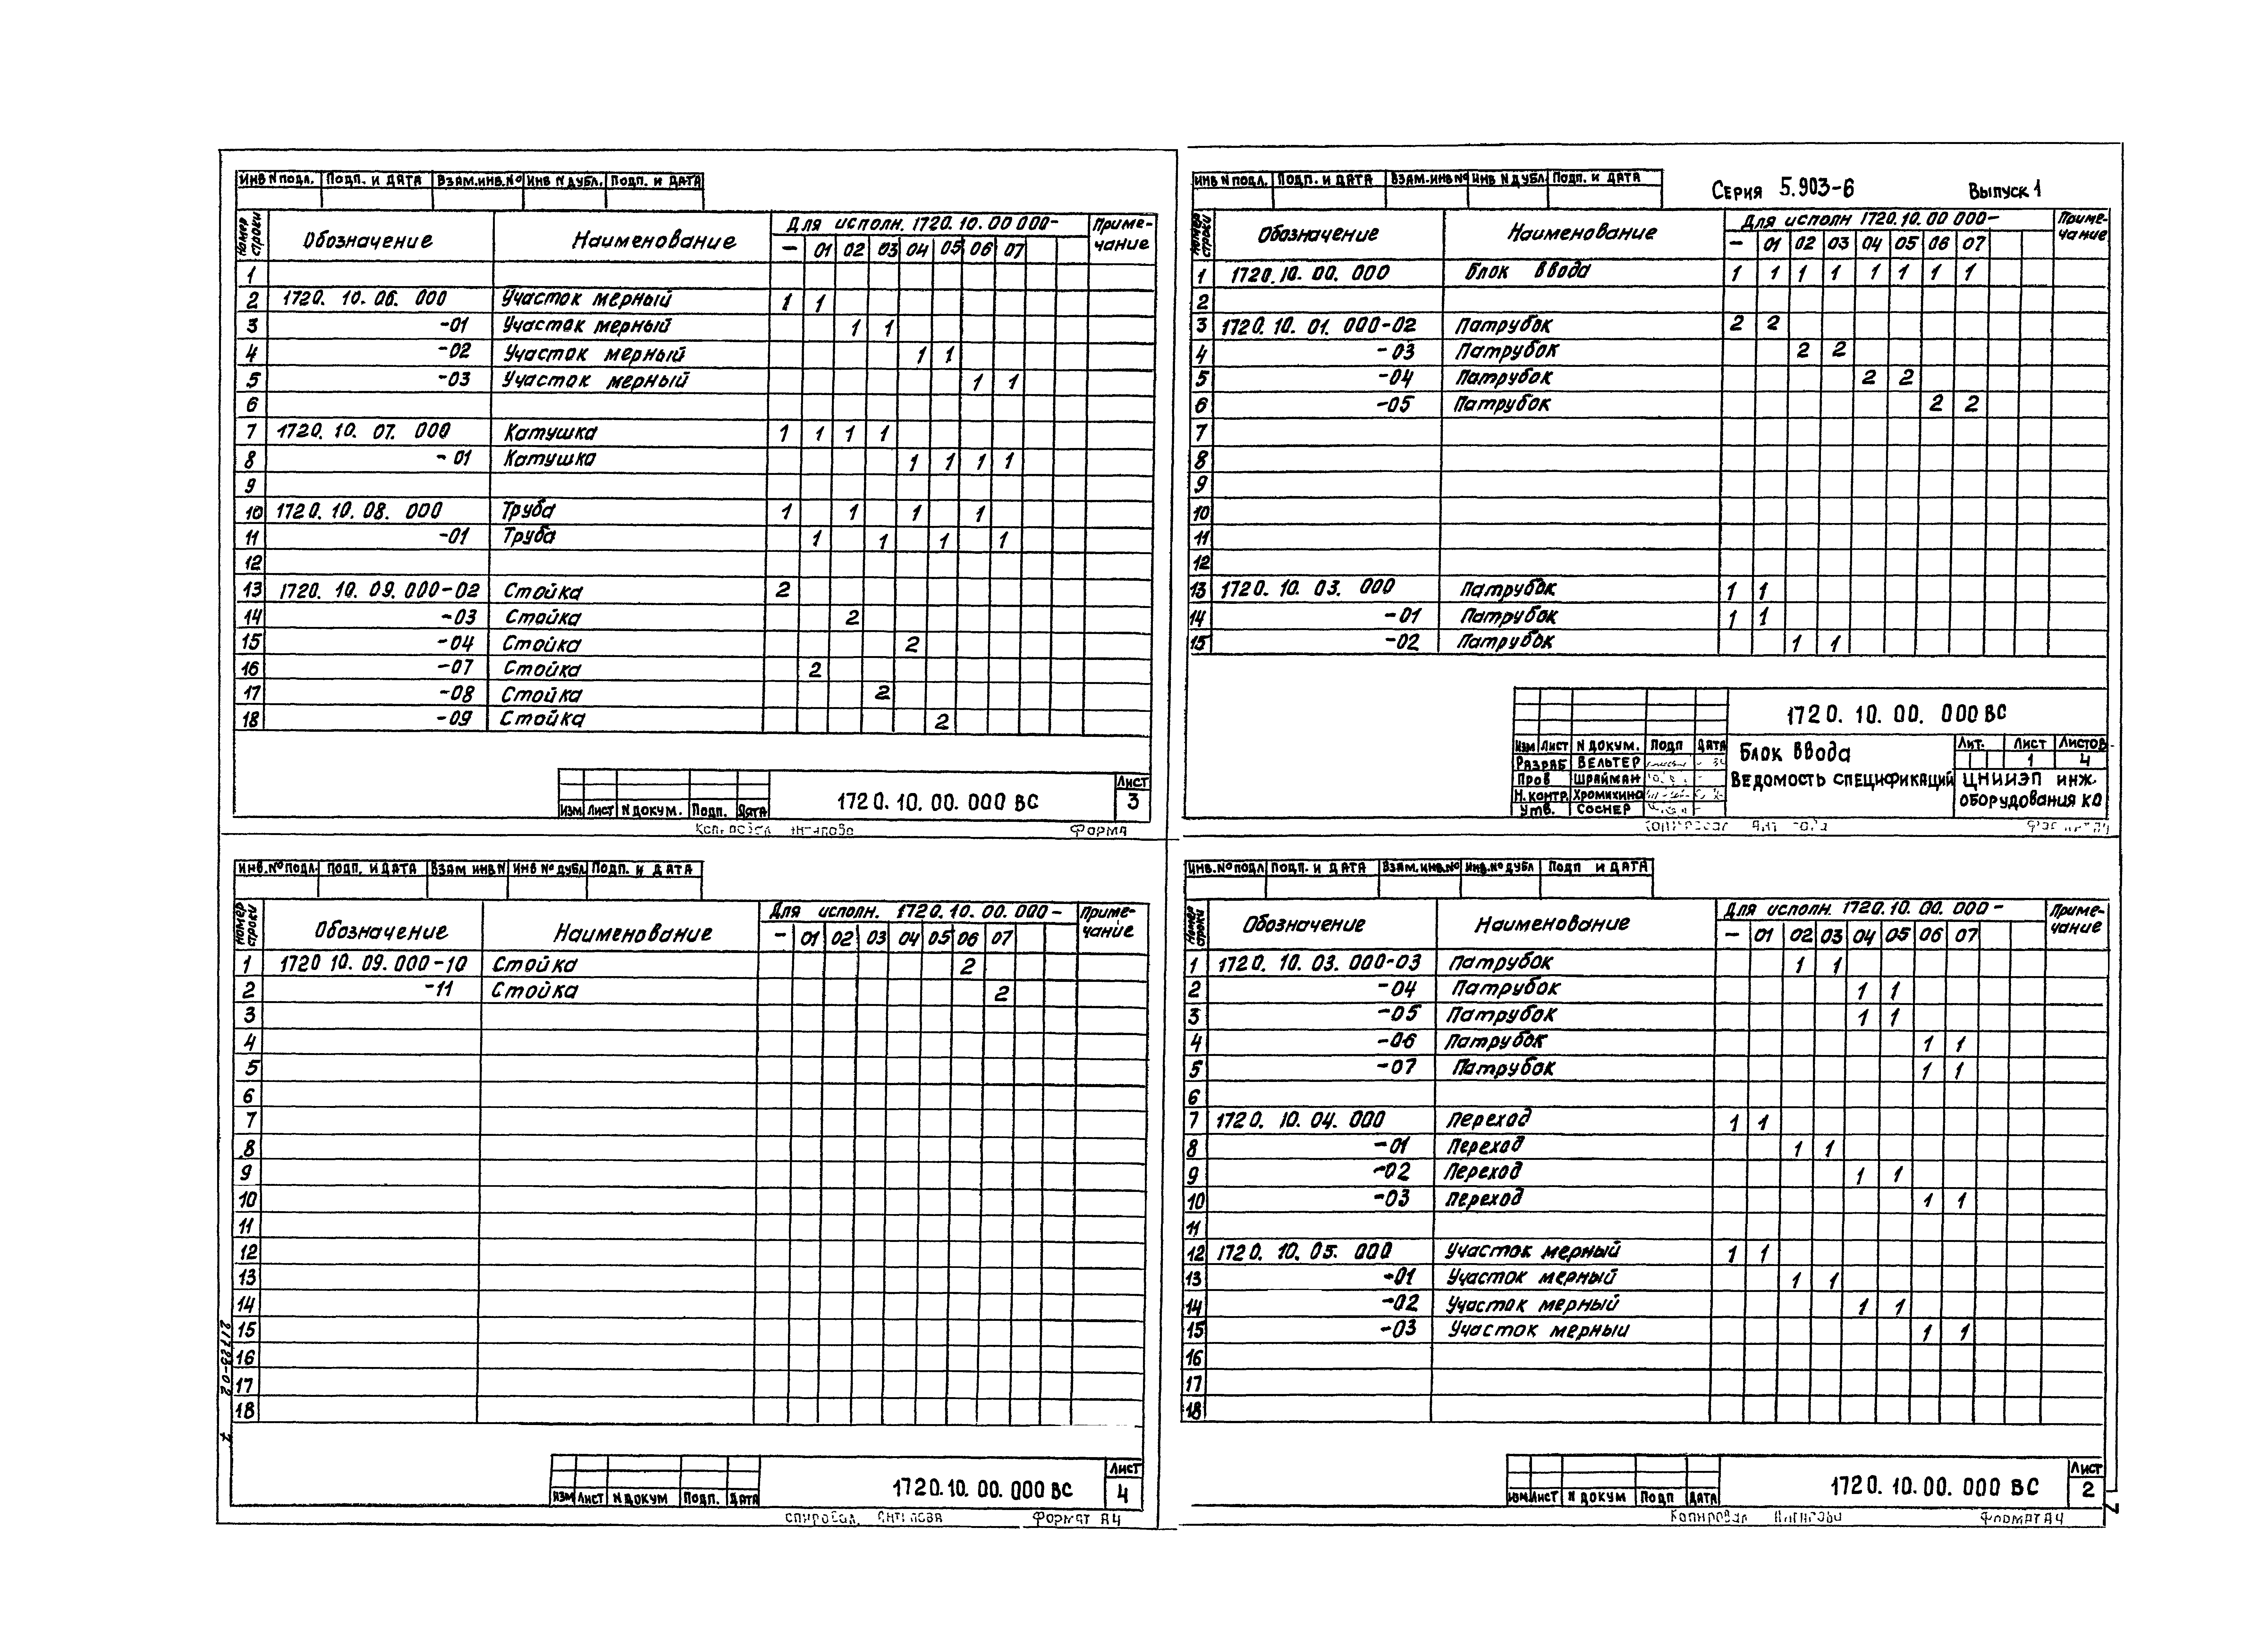 ИНВ N ПОДЛ. ПОДП. И ДАТА ВЗАМ.ИНВ.№ ИНВ N ДУБЛ. ПОДП. И ДАТА
Номер строки Обозначение Наименование Для исполн. 1720.10.00 000- Приме-чание
– 01 02 03 04 05 06 07
1
2 1720. 10. 06. 000 Участок мерный 1 1
3 -01 Участок мерный 1 1
4 -02 Участок мерный 1 1
5 -03 Участок мерный 1 1
6
7 1720. 10. 07. 000 Катушка 1 1 1 1
8 - 01 Катушка 1 1 1 1
9
10 1720. 10. 08. 000 Труба 1 1 1 1
11 -01 Труба 1 1 1 1
12
13 1720. 10. 09. 000-02 Стойка 2
14 -03 Стойка 2
15 -04 Стойка 2
16 -07 Стойка 2
17 -08 Стойка 2
18 -09 Стойка 2
ИЗМ ЛИСТ N ДОКУМ. ПОДП. ДАТА 1720. 10. 00. 000 ВС ЛИСТ 3
ФОРМА
ИНВ N ПОДЛ. ПОДП. И ДАТА ВЗАМ.ИНВ № ИНВ N ДУБЛ ПОДП. И ДАТА
СЕРИЯ 5.903-6 ВЫПУСК 1
Номер строки Обозначение Наименование Для исполн 1720.10.00 000- Приме-чание
– 01 02 03 04 05 06 07
1 1720.10. 00. 000 Блок ввода 1 1 1 1 1 1 1 1
2
3 1720. 10. 01. 000-02 Патрубок 2 2
4 -03 Патрубок 2 2
5 -04 Патрубок 2 2
6 -05 Патрубок 2 2
7
8
9
10
11
12
13 1720. 10. 03. 000 Патрубок 1 1
14 -01 Патрубок 1 1
15 -02 Патрубок 1 1
1720. 10. 00. 000 ВС
ИЗМ ЛИСТ N ДОКУМ. ПОДП ДАТА
РАЗРАБ ВЕЛЬТЕР
ПРОВ ШРАЙМАН
Н.КОНТР. ХРОМИХИНА
УТВ. СОСНЕР
БЛОК ВВОДА
ВЕДОМОСТЬ СПЕЦИФИКАЦИЙ
ЛИТ. ЛИСТ ЛИСТОВ
1 4
ЦНИИЭП ИНЖ.
ОБОРУДОВАНИЯ КО
ИНВ.№ ПОДЛ. ПОДП. И ДАТА ВЗАМ ИНВ N ИНВ № ДУБЛ ПОДП. И ДАТА
Номер строки Обозначение Наименование Для исполн. 1720.10.00.000- Приме-чание
– 01 02 03 04 05 06 07
1 1720 10. 09. 000-10 Стойка 2
2 -11 Стойка 2
3
4
5
6
7
8
9
10
11
12
13
14
15
16
17
18
21723-02
ИЗМ ЛИСТ N ДОКУМ ПОДП. ДАТА 1720.10. 00. 000 ВС ЛИСТ 4
ФОРМАТ А4
ИНВ.№ ПОДЛ ПОДП. И ДАТА ВЗАМ.ИНВ.№ ИНВ.№ ДУБЛ ПОДП И ДАТА
Номер строки Обозначение Наименование Для исполн. 1720.10. 00. 000- Приме-чание
– 01 02 03 04 05 06 07
1 1720. 10. 03. 000-03 Патрубок 1 1
2 -04 Патрубок 1 1
3 -05 Патрубок 1 1
4 -06 Патрубок 1 1
5 -07 Патрубок 1 1
6
7 1720. 10. 04. 000 Переход 1 1
8 -01 Переход 1 1
9 -02 Переход 1 1
10 -03 Переход 1 1
11
12 1720. 10. 05. 000 Участок мерный 1 1
13 -01 Участок мерный 1 1
14 -02 Участок мерный 1 1
15 -03 Участок мерный 1 1
16
17
18
ИЗМ ЛИСТ N ДОКУМ ПОДП ДАТА 1720. 10. 00. 000 ВС ЛИСТ 2
ФОРМАТ А4
7